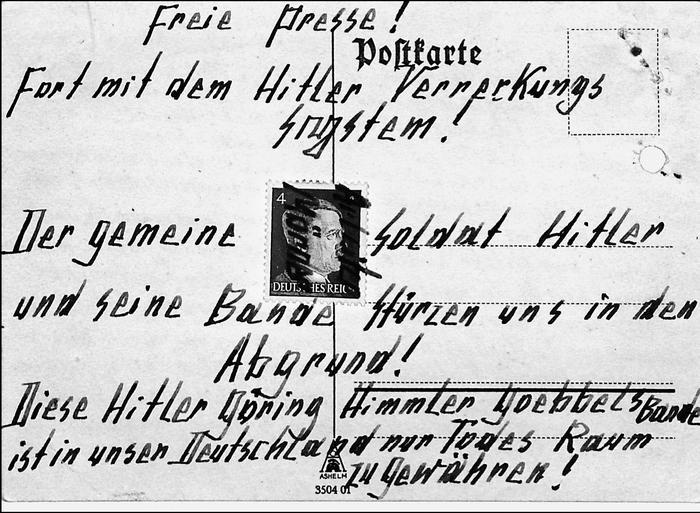 Freie Presse!
Postkarte
Fort mit dem Hitler Verreckungs
system!
4
DEUTSCHES REICH
Der gemeine Soldat Hitler
und seine Bande stürzen uns in den
Abgrund!
Diese Hitler Göring Himmler Goebbels Bande
ist in unser Deutschland nur Todes Raum
zu gewähren!
ASHELM
3504 01